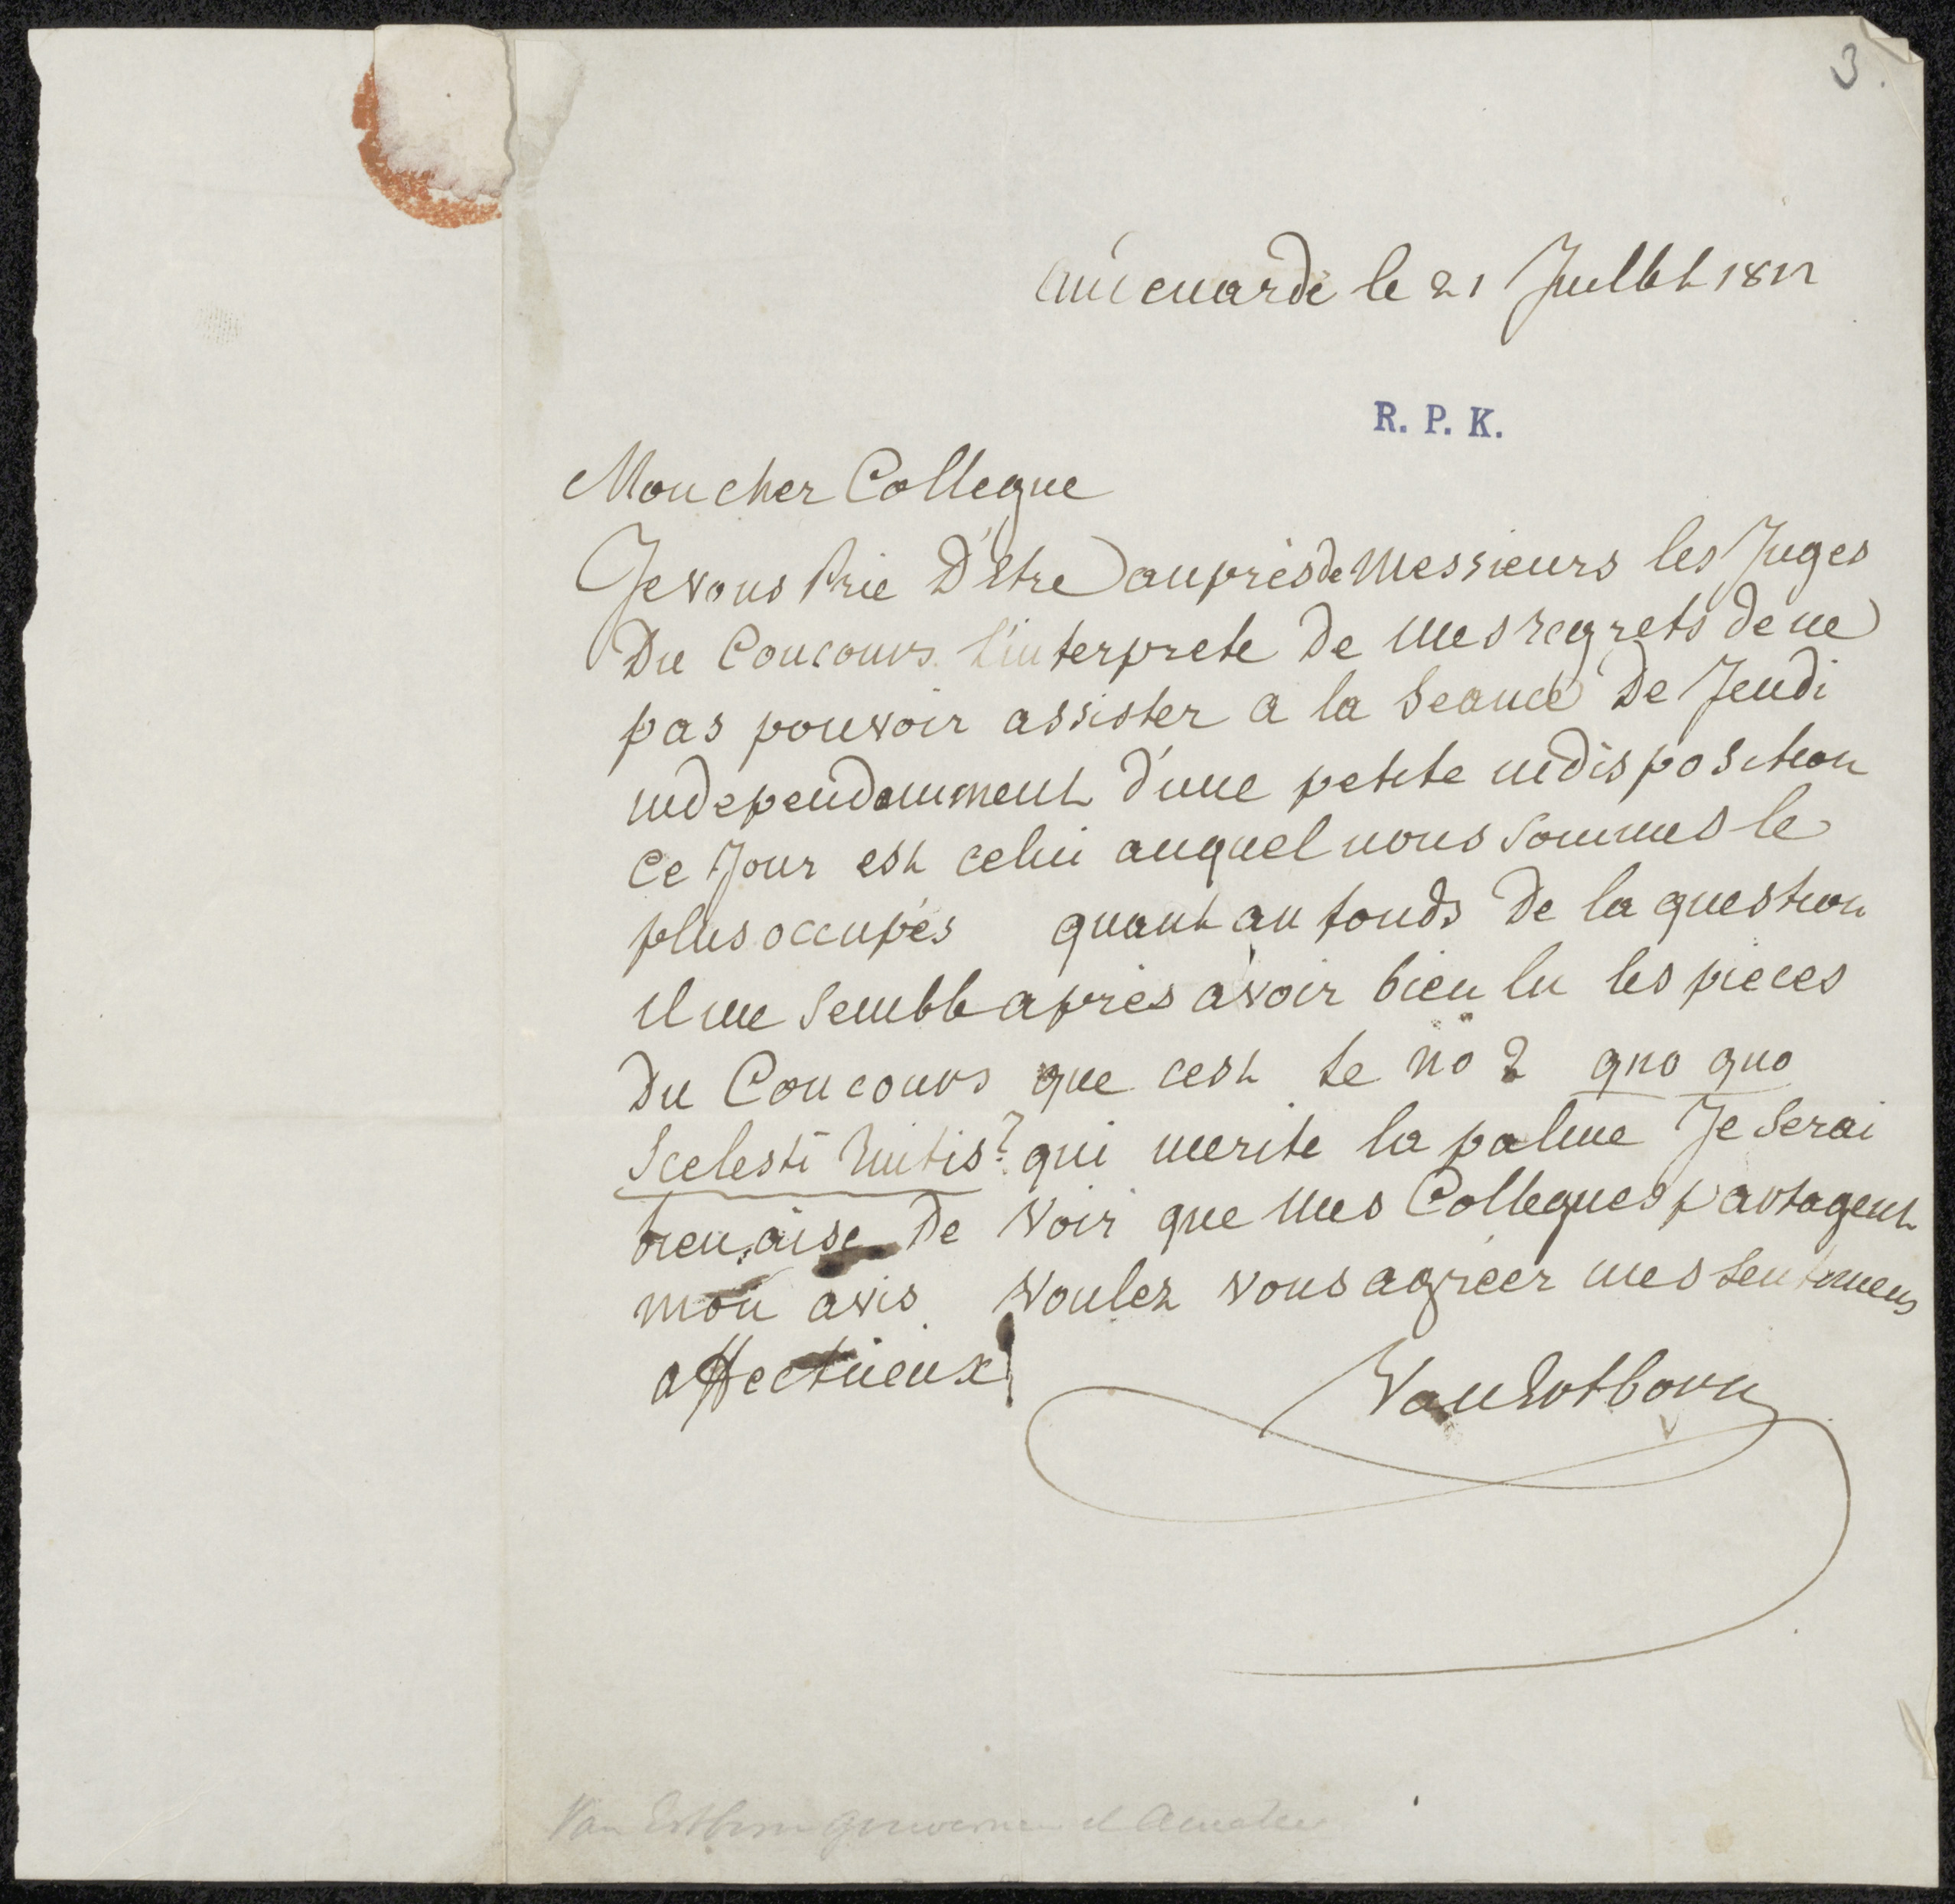 3.
Audenarde le 21 Juillet 1812
R. P. K.
Mon cher Collegue
Je vous Prie D'Etre auprès de Messieurs les Juges
Du Concours l'interprete De mes regrets de ne
pas pouvoir assister a la Seance De Jeudi
independamment d'une petite indisposition
Ce Jour est celui auquel nous Sommes le
plus occupés quant au fonds De la question
il me Semble après avoir bien lu les pieces
Du Concours que cest le no 2 quo quo
Scelesti ruitis? qui merite la palme Je Serai
bien aise De Voir que mes Collegues partagent
mon avis Voulez vous agréer mes Sentimens
affectueux
Van Ertborn
Van Ertborn gouverneur et Amateur